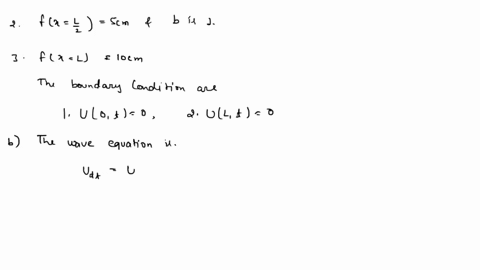 2. f(x = L/2) = 5cm & b is 2.
3. f(x = L) = 10cm
The boundary condition are
1. U(0, t) = 0, 2. U(L, t) = 0
b) The wave equation is.
U_dt = U